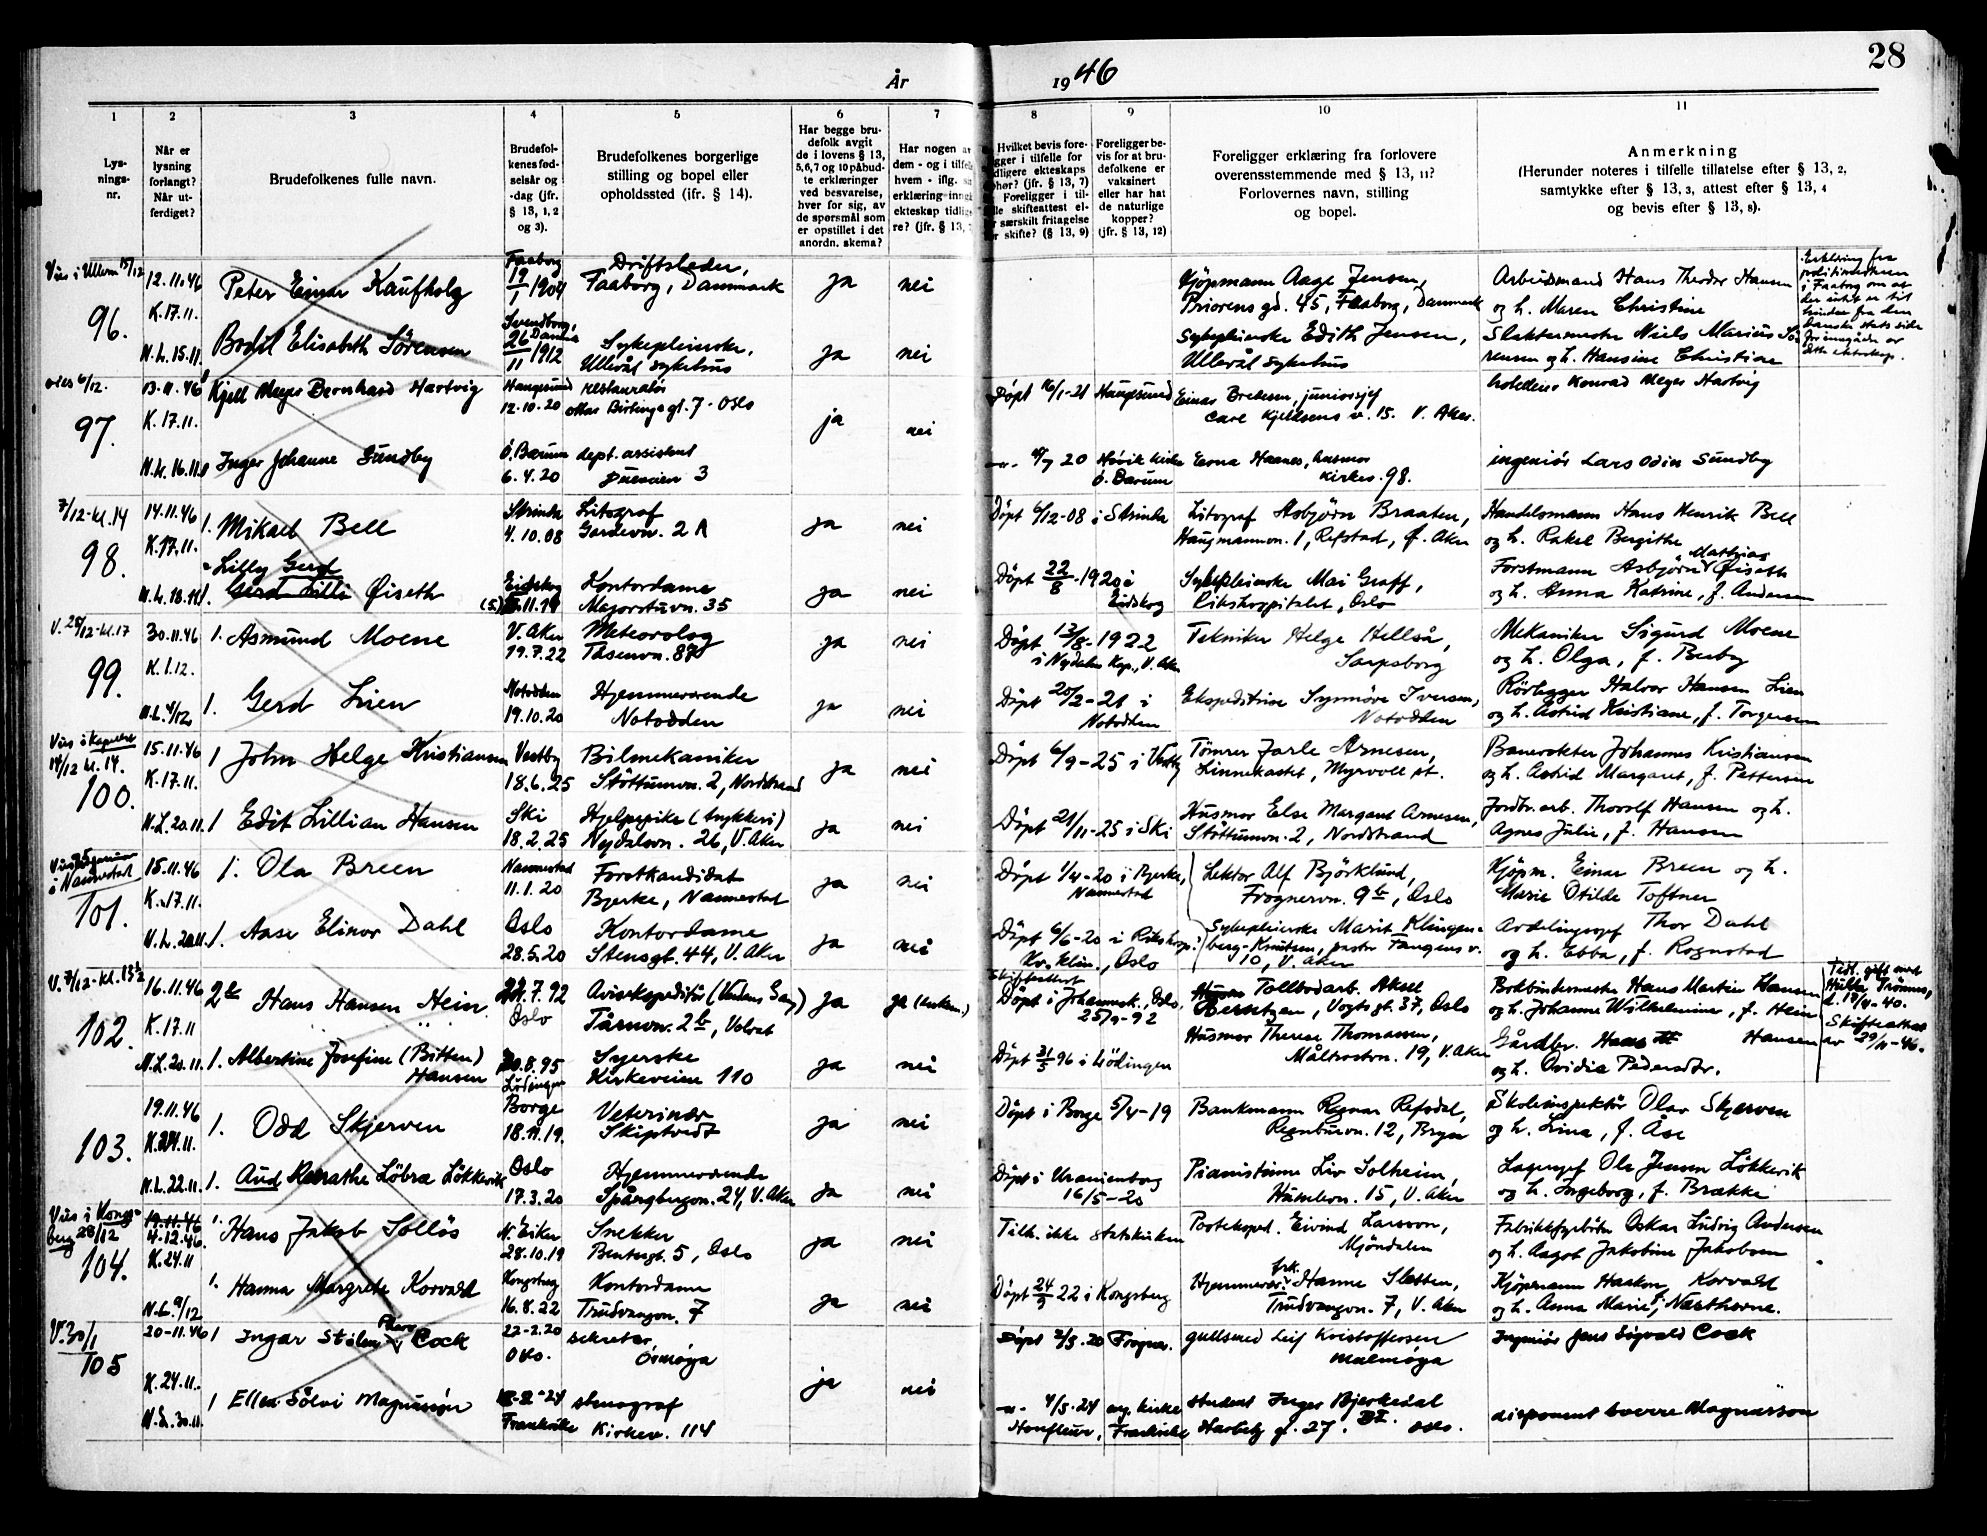 28
År 1946
1 2 3 4 5 6 7 8 9 10 11
Lys-
nings-
nr.
Når er
lysning
forlangt?
Når ut-
ferdiget?
Brudefolkenes fulle navn.
Brudefol-
kenes fød-
selsår og
-dag (jfr.
§ 13, 1, 2
og 3).
Brudefolkenes borgerlige
stilling og bopel eller
opholdssted (jfr. § 14).
Har begge bru-
defolk avgit
de i lovens § 13,
5, 6, 7 og 10 påbud-
te erklæringer
ved besvarelse,
hver for sig, av
de spørsmål som
er opstillet i det
anordn. skema?
Har nogen av
dem - og i tilfelle
hvem - iflg.
erklæring inngått
ekteskap tidlige-
re? (jfr. § 13,
Hvilket bevis fore-
ligger i tilfelle for
tidligere ekteskaps
ophør? (jfr. § 13, 7)
Foreligger i til-
felle skifteattest el-
særskilt fritagelse
skifte? (§ 13, 9)
Foreligger be-
vis for at bru-
defolkene er
vaksinert
eller har hat
de naturlige
kopper?
(jfr. § 13, 12)
Foreligger erklæring fra forlovere
overensstemmende med § 13, 11?
Forlovernes navn, stilling
og bopel.
Anmerkning
(Herunder noteres i tilfelle tillatelse efter § 13, 2,
samtykke efter § 13, 3, attest efter § 13, 4
og bevis efter § 13, 8).
Vies i Ullern 15/12
96.
12.11.46
K. 17.11.
N.L. 15.11.
Peter Einar Kaufholz
Faaborg
19/1 1904
Driftsleder,
Faaborg, Danmark
ja nei
Kjöpmann Aage Jensen,
Priorens gd. 45, Faaborg, Danmark
Arbeidsmand Hans Theodor Hansen
og h. Maren Christine
Bodil Elisabeth Sörensen
Svendborg,
Danm.
26/11 1912
Sykepleierske,
Ullevål sykehus
ja nei
Sykepleierske Edith Jensen,
Ullevål sykehus
Slaktermester Niels Marius Sö-
rensen og h. Hansine Christiane
Erklæring fra
politimesteren
i Faaborg om at
der intet er til
hinder fra den
danske stats side
for inngåelse av
dette ekteskap.
vies 6/12.
97.
13.11.46
K. 17.11.
N.L. 16.11.
Kjell Meyer Bernhard Hartvig
Haugesund
12.10.20
restauratør
gt. 7. Oslo
ja nei
Döpt 16/1-21 Haugesund
Einar Breksen, juniorsjef
Carl Kjeldsens v. 15. V. Aker.
Konrad Meyer Hartvig
Inger Johanne Sundby
Ö. Bærum
6.4.20
dept. assistent
Dueveien 3
20 Høvik kirke
Ö. Bærum
Erna Haanes, husmor
Kirkev. 98.
ingeniör Lars Odin Sundby
7/12-kl. 14
98.
14.11.46
K. 17.11.
N.L. 18.11.
1. Mikael Bell
Strinda
4.10.08
Litograf
Gardevn. 2 A
ja nei
Döpt 6/12-08 i Strinda
Litograf Asbjørn Braaten,
Haugmannvn. 1, Refstad, Ø. Aker
Handelsmann Hans Henrik Bell
og h. Rakel Bergithe
Lilly Gerd
1. Gerd Lilli Øiseth
Eidskog
(5) 11.19
Kontordame
Majorstuvn. 35
ja nei
Döpt 22/8-1920 i
Eidskog
Sykepleierske Mai Graff,
Rikshospitalet, Oslo
Mathias
Forstmann Asbjørn Øiseth
og h. Anna Katrine, f. Andersen
V. 28/12-kl. 17
99.
30.11.46
K. 1.12.
N.L. 4/12.
1. Asmund Moene
V. Aker
19.7.22
Meteorolog
Tåsenvn. 87
ja nei
Döpt 13/8-1922
i Nydalen Kap., V. Aker
Tekniker Helge Hellså,
Sarpsborg
Mekaniker Sigurd Moene
og h. Olga, f. Berby
1. Gerd Lien
Notodden
19.10.20
Hjemmeværende
Notodden
ja nei
Döpt 20/2-21 i
Notodden
Ekspeditrise Synnöve Iversen,
Notodden
Rörlegger Halvor Hansen Lien
og h. Astrid Kristiane, f. Torgersen
Vies i Kapellet
14/12 kl. 14.
100.
15.11.46
K. 17.11.
N.L. 20.11.
1 John Helge Kristiansen
Vestby
18.6.25
Bilmekaniker
Stöttumvn. 2, Nordstrand
ja nei
Döpt 6/9-25 i Vestby
Tömrer Jarle Arnesen,
Linnekastet, Myrvoll st.
Banevokter Johannes Kristiansen
og h. Astrid Margaret, f. Pettersen
1 Edit Lillian Hansen
Ski
18.2.25
Hjelpepike (trykkeri)
Nydalsvn. 26, V. Aker
ja nei
Döpt 21/11-25 i Ski
Husmor Else Margaret Arnesen,
Stöttumvn. 2, Nordstrand
Jordbr.arb. Thorolf Hansen og h.
Agnes Julie, f. Hansen
i Nannestad
101.
15.11.46
K. 17.11.
N.L. 20.11.
1. Ola Breen
Nannestad
11.1.20
Forstkandidat
Bjerke, Nannestad
ja nei
Döpt 1/4-20 i Bjerke,
Nannestad
Lektor Alf Björklund,
Frognervn. 9b, Oslo
Kjöpm. Einar Breen og h.
Marie Otilde Toftner
1. Aase Elinor Dahl
Oslo
28.5.20
Kontordame
Stensgt. 44, V. Aker
ja nei
Döpt 6/6-20 i Rikshosp.
Kv.klin., Oslo
Sykepleierske Marit Klingen-
berg-Knutsen, pastor Fangens v.
10, V. Aker
Avdelingssjef Thor Dahl
og h. Ebba, f. Rognstad
V. 7/12-kl. 13½
102.
16.11.46
K. 17.11
N.L. 20.11.
2de Hans Hansen Hein.
.7.92
Oslo
Avisekspeditör (Verdens Gang)
Tårnvn. 2b, Volvat
ja ja (enkem.)
Skifteattest
Döpt i Johannesk. Oslo,
25/9-92
Tollbodarb. Aksel
Berntzen, Vogts gt. 37, Oslo
Bokbindermester Hans Martin Hansen
og h. Johanne Wilhelmine, f. Hein
Tidl. gift med
Hulda Trömms,
d. 18/4-40.
Skifteattest
av 29/11-46.
1. Albertine Josefine (Bitten)
Hansen
20.8.95
Lödingen
Syerske
Kirkeveien 110
ja nei
Döpt 31/5 96 i Lödingen
Husmor Therese Thomassen,
Måltrostvn. 19, V. Aker
Gårdbr. Hans Hansen
og h. Ovidia Pedersdtr.
103.
19.11.46
K. 24.11.
N.L. 22.11.
1. Odd Skjerven
Borge
18.11.19.
Veterinær
Skiptvedt
ja nei
Döpt i Borge 5/4-19
Bankmann Ragnar Refsdal,
Regnbuevn. 12, Bryn
Skoleinspektör Olav Skjerven
og h. Lina, f. Åse
1. Aud Renathe Löbra Lökkevik
Oslo
17.3.20
Hjemmeværende
Spångbergvn. 24, V. Aker
ja nei
Döpt i Uranienborg
16/5-20
Pianistinne Liv Solheim,
Humlevn. 15, V. Aker
Lagersjef Ole Jensen Lökkevik
og h. Ingeborg, f. Brække
Vies i Kongs-
berg 28/12
104.
19.11.46
4.12.46.
K. 24.11
N.L. 9/12
1. Hans Jakob Solløs
N. Eiker
28.10.19
Snekker
Bentsegt. 5, Oslo
ja nei
Tilh. ikke statskirken
Posteksped. Eivind Larsson,
Mjöndalen
Fabrikkfyrböter Oskar Ludvig Andersen
og h. Aagot Jakobine Jakobsen
1. Hanna Margrete Korvald
Kongsberg
16.8.22
Kontordame
Trudvangvn. 7
ja nei
Döpt 24/9 22 i Kongsberg
Hjemmevær. frk. Hanne Sletten,
Trudvangvn. 7, V. Aker
Kjöpmann Haakon Korvald
og h. Anna Marie, f. Næstherne.
V. 30/1
105
20-11.46
K. 24.11.
N.L. 30.11
1 Ingar Stölen Cock
22-2.20
Oslo.
sekretær
Ormøya
ja nei
Döpt 2/5.20 Frogner.
gullsmed Leif Kristoffersen
Malmøya
Ingeniör Jens Sigvald Cock
1 Ellen Sölvi Magnusson
-24
Frankrike
stenograf
Kirkev. 114
4/5-24 eng. kirke
Honfleur, Frankrike
student Inger Bjerkedal
Harbitz gt. 27. Oslo.
disponent Sverre Magnusson